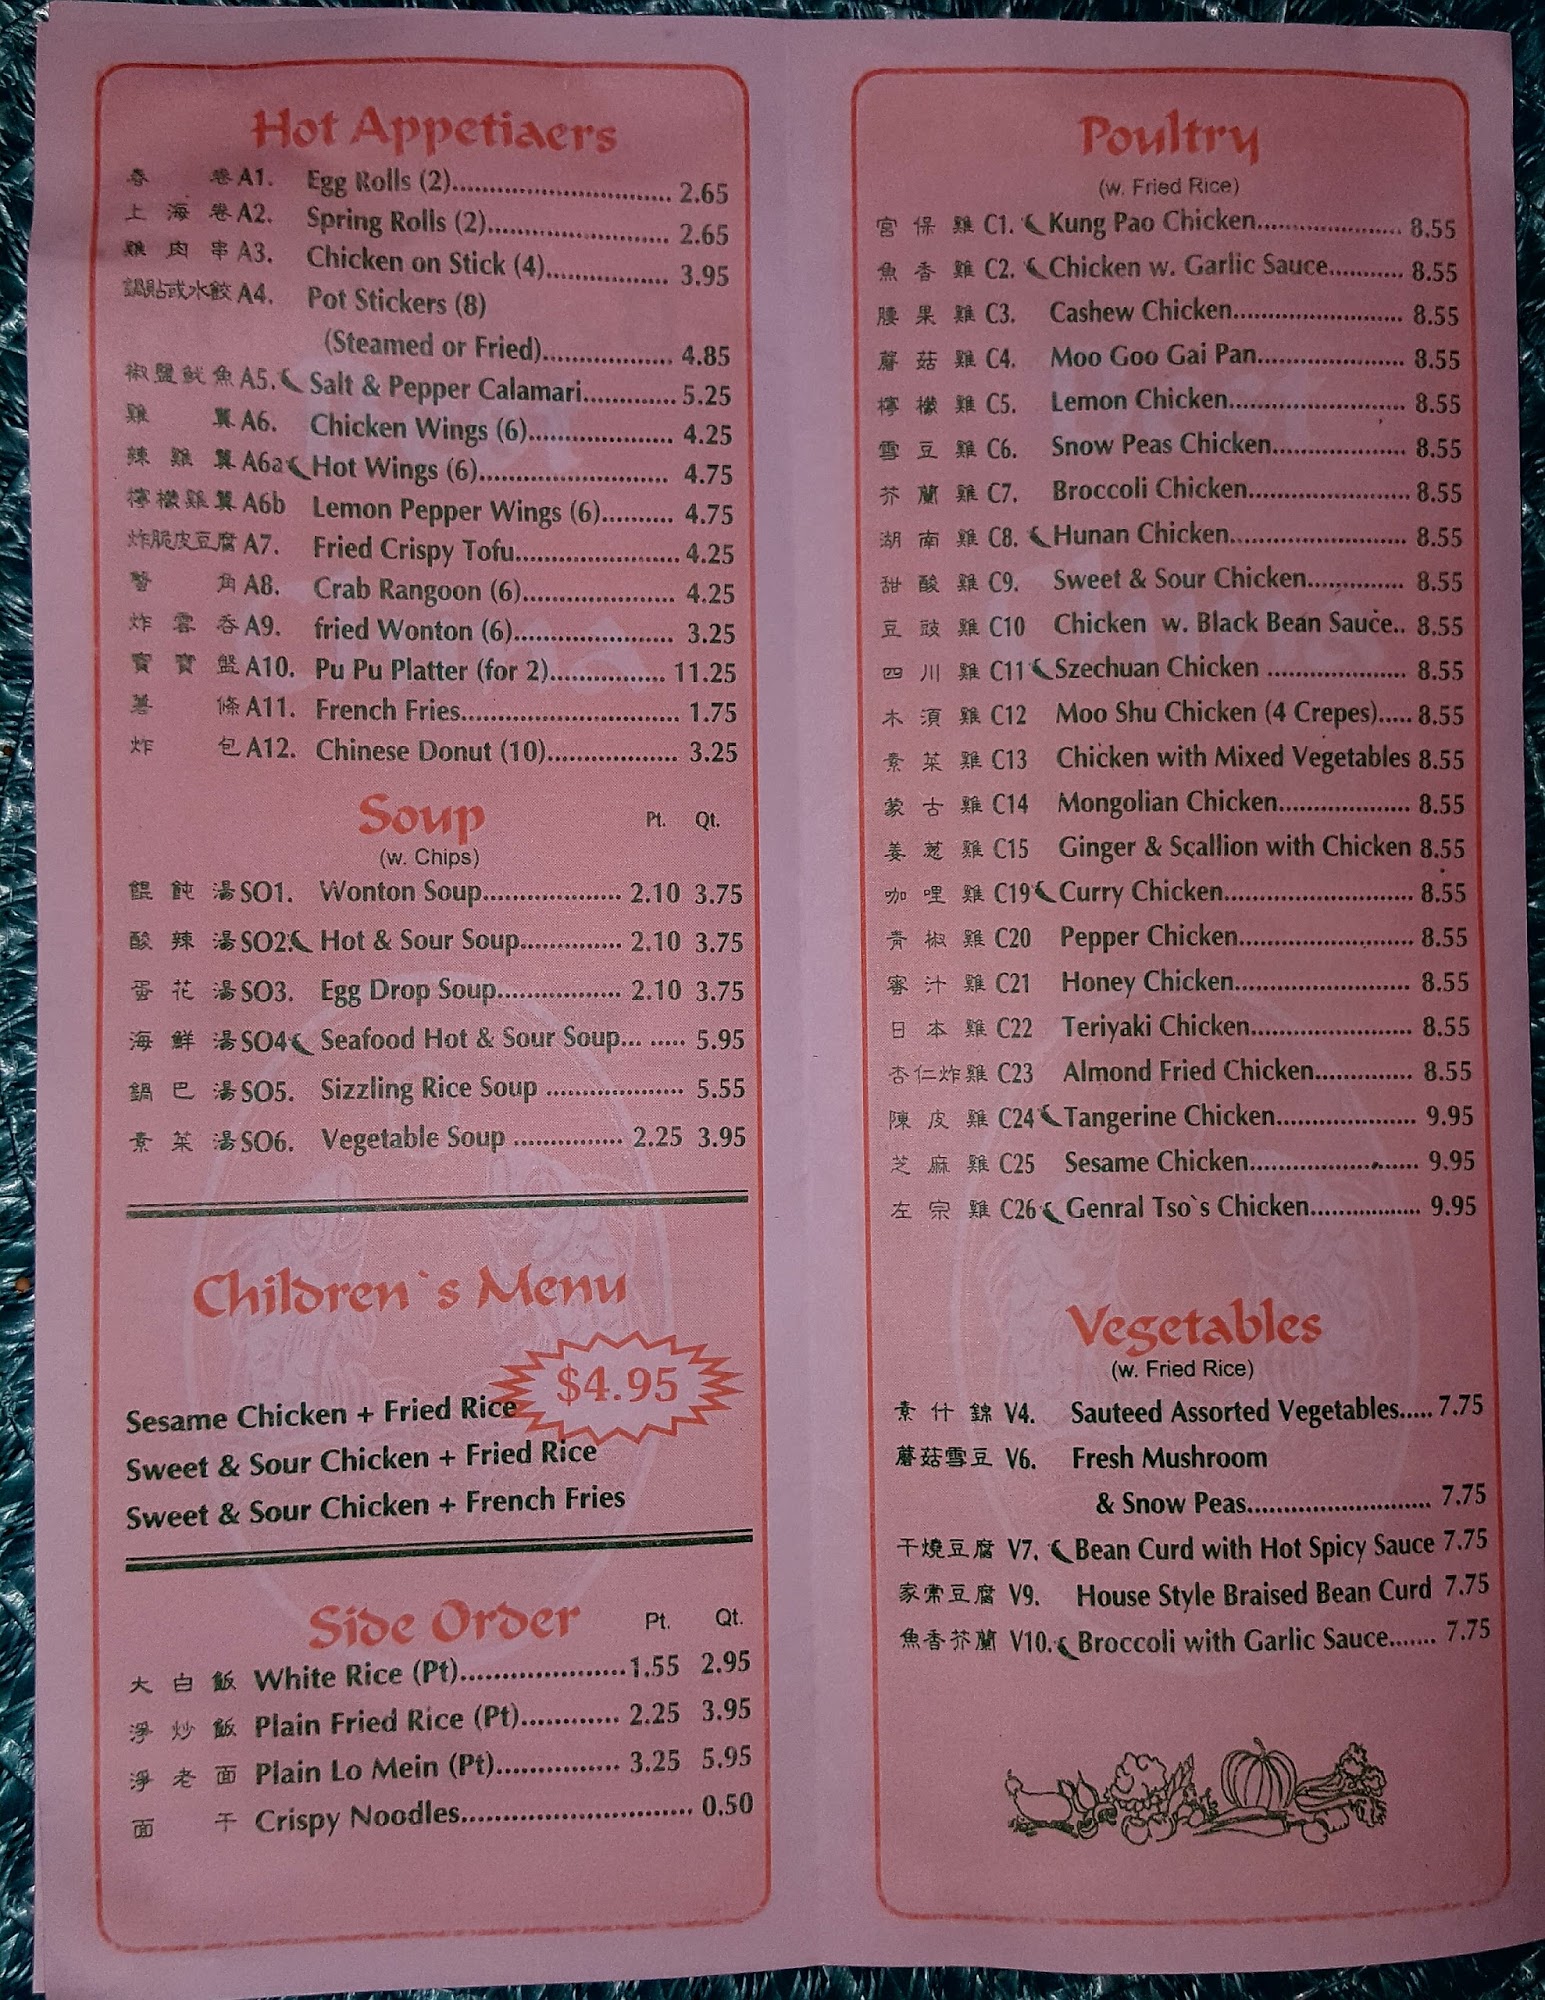 Hot Appetiaers
春 卷 A1. Egg Rolls (2)........................... 2.65
上 海 卷 A2. Spring Rolls (2)...................... 2.65
雞 肉 串 A3. Chicken on Stick (4)............... 3.95
鍋貼或水餃 A4. Pot Stickers (8)
(Steamed or Fried)................ 4.85
椒鹽魷魚 A5. Salt & Pepper Calamari............ 5.25
雞 翼 A6. Chicken Wings (6)................... 4.25
辣 雞 翼 A6a Hot Wings (6)......................... 4.75
檸檬雞翼 A6b Lemon Pepper Wings (6).......... 4.75
炸脆皮豆腐 A7. Fried Crispy Tofu..................... 4.25
蟹 角 A8. Crab Rangoon (6).................... 4.25
炸 雲 吞 A9. fried Wonton (6)..................... 3.25
寶 寶 盤 A10. Pu Pu Platter (for 2)................ 11.25
薯 條 A11. French Fries............................. 1.75
炸 包 A12. Chinese Donut (10).................. 3.25
Soup Pt. Qt.
(w. Chips)
餛 飩 湯 SO1. Wonton Soup.................... 2.10 3.75
酸 辣 湯 SO2. Hot & Sour Soup.............. 2.10 3.75
蛋 花 湯 SO3. Egg Drop Soup.................. 2.10 3.75
海 鮮 湯 SO4. Seafood Hot & Sour Soup... ..... 5.95
鍋 巴 湯 SO5. Sizzling Rice Soup .................... 5.55
素 菜 湯 SO6. Vegetable Soup ................ 2.25 3.95
Children`s Menu
$4.95
Sesame Chicken + Fried Rice
Sweet & Sour Chicken + Fried Rice
Sweet & Sour Chicken + French Fries
Side Order Pt. Qt.
大 白 飯 White Rice (Pt)......................1.55 2.95
淨 炒 飯 Plain Fried Rice (Pt)............. 2.25 3.95
淨 老 面 Plain Lo Mein (Pt)................ 3.25 5.95
面 干 Crispy Noodles............................. 0.50
Poultry
(w. Fried Rice)
宮 保 雞 C1. Kung Pao Chicken..................... 8.55
魚 香 雞 C2. Chicken w. Garlic Sauce........... 8.55
腰 果 雞 C3. Cashew Chicken........................ 8.55
蘑 菇 雞 C4. Moo Goo Gai Pan..................... 8.55
檸 檬 雞 C5. Lemon Chicken......................... 8.55
雪 豆 雞 C6. Snow Peas Chicken................... 8.55
芥 蘭 雞 C7. Broccoli Chicken...................... 8.55
湖 南 雞 C8. Hunan Chicken......................... 8.55
甜 酸 雞 C9. Sweet & Sour Chicken............. 8.55
豆 豉 雞 C10 Chicken w. Black Bean Sauce.. 8.55
四 川 雞 C11 Szechuan Chicken .................... 8.55
木 須 雞 C12 Moo Shu Chicken (4 Crepes)..... 8.55
素 菜 雞 C13 Chicken with Mixed Vegetables 8.55
蒙 古 雞 C14 Mongolian Chicken................... 8.55
姜 蔥 雞 C15 Ginger & Scallion with Chicken 8.55
咖 哩 雞 C19 Curry Chicken........................... 8.55
青 椒 雞 C20 Pepper Chicken......................... 8.55
蜜 汁 雞 C21 Honey Chicken......................... 8.55
日 本 雞 C22 Teriyaki Chicken....................... 8.55
杏仁炸雞 C23 Almond Fried Chicken.............. 8.55
陳 皮 雞 C24 Tangerine Chicken.................... 9.95
芝 麻 雞 C25 Sesame Chicken........................ 9.95
左 宗 雞 C26 Genral Tso`s Chicken................ 9.95
Vegetables
(w. Fried Rice)
素 什 錦 V4. Sauteed Assorted Vegetables..... 7.75
蘑菇雪豆 V6. Fresh Mushroom
& Snow Peas........................... 7.75
干燒豆腐 V7. Bean Curd with Hot Spicy Sauce 7.75
家常豆腐 V9. House Style Braised Bean Curd 7.75
魚香芥蘭 V10. Broccoli with Garlic Sauce....... 7.75